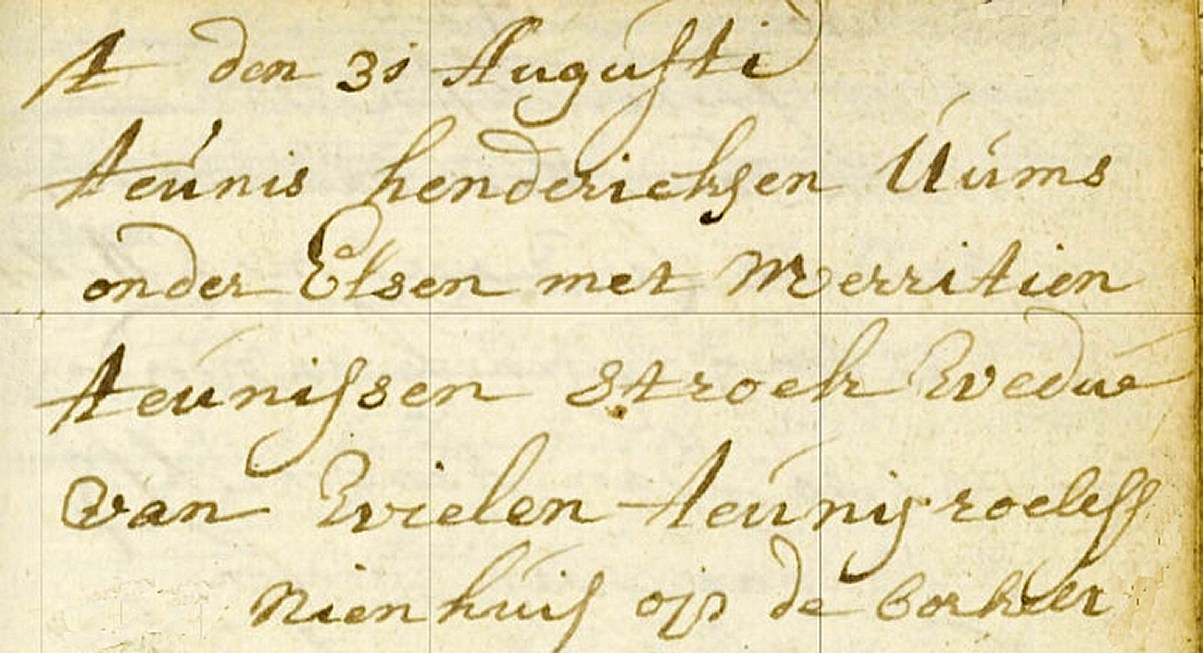 A den 31 Augusti
teunis henderichsen Uums
onder Elsen met Merritien
teunissen stroek wedue
van wielen teunis roelefs
nienhuis op de borkeler